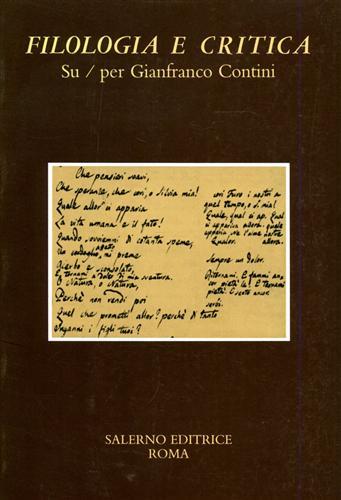 FILOLOGIA E CRITICA
Su / per Gianfranco Contini
Che pensieri soavi,
Che speranze, che cori, o Silvia mia!
Quale allor ci apparia
La vita umana e il fato!
Quando sovviemmi di cotanta speme,
un mi preme
Acerbo e sconsolato,
E tornami a doler di mia sventura.
O Natura, o Natura,
Perchè non rendi poi
Quel che prometti allor? perchè di tanto
Inganni i figli tuoi?
cori furo i nostri a
quel tempo, o S. mia!
Quale, qual ci ap. Qual
ci appariva allora. quale
allora.
Sempre un dolor.
E
E
SALERNO EDITRICE
ROMA